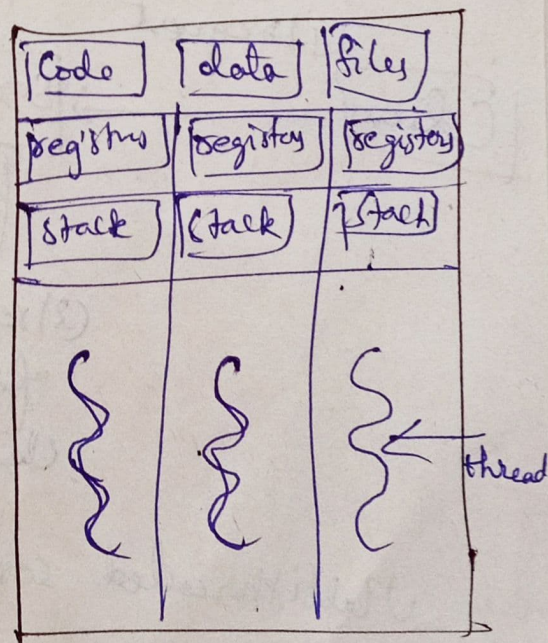 Code data files
registers registers registers
stack stack stack
thread